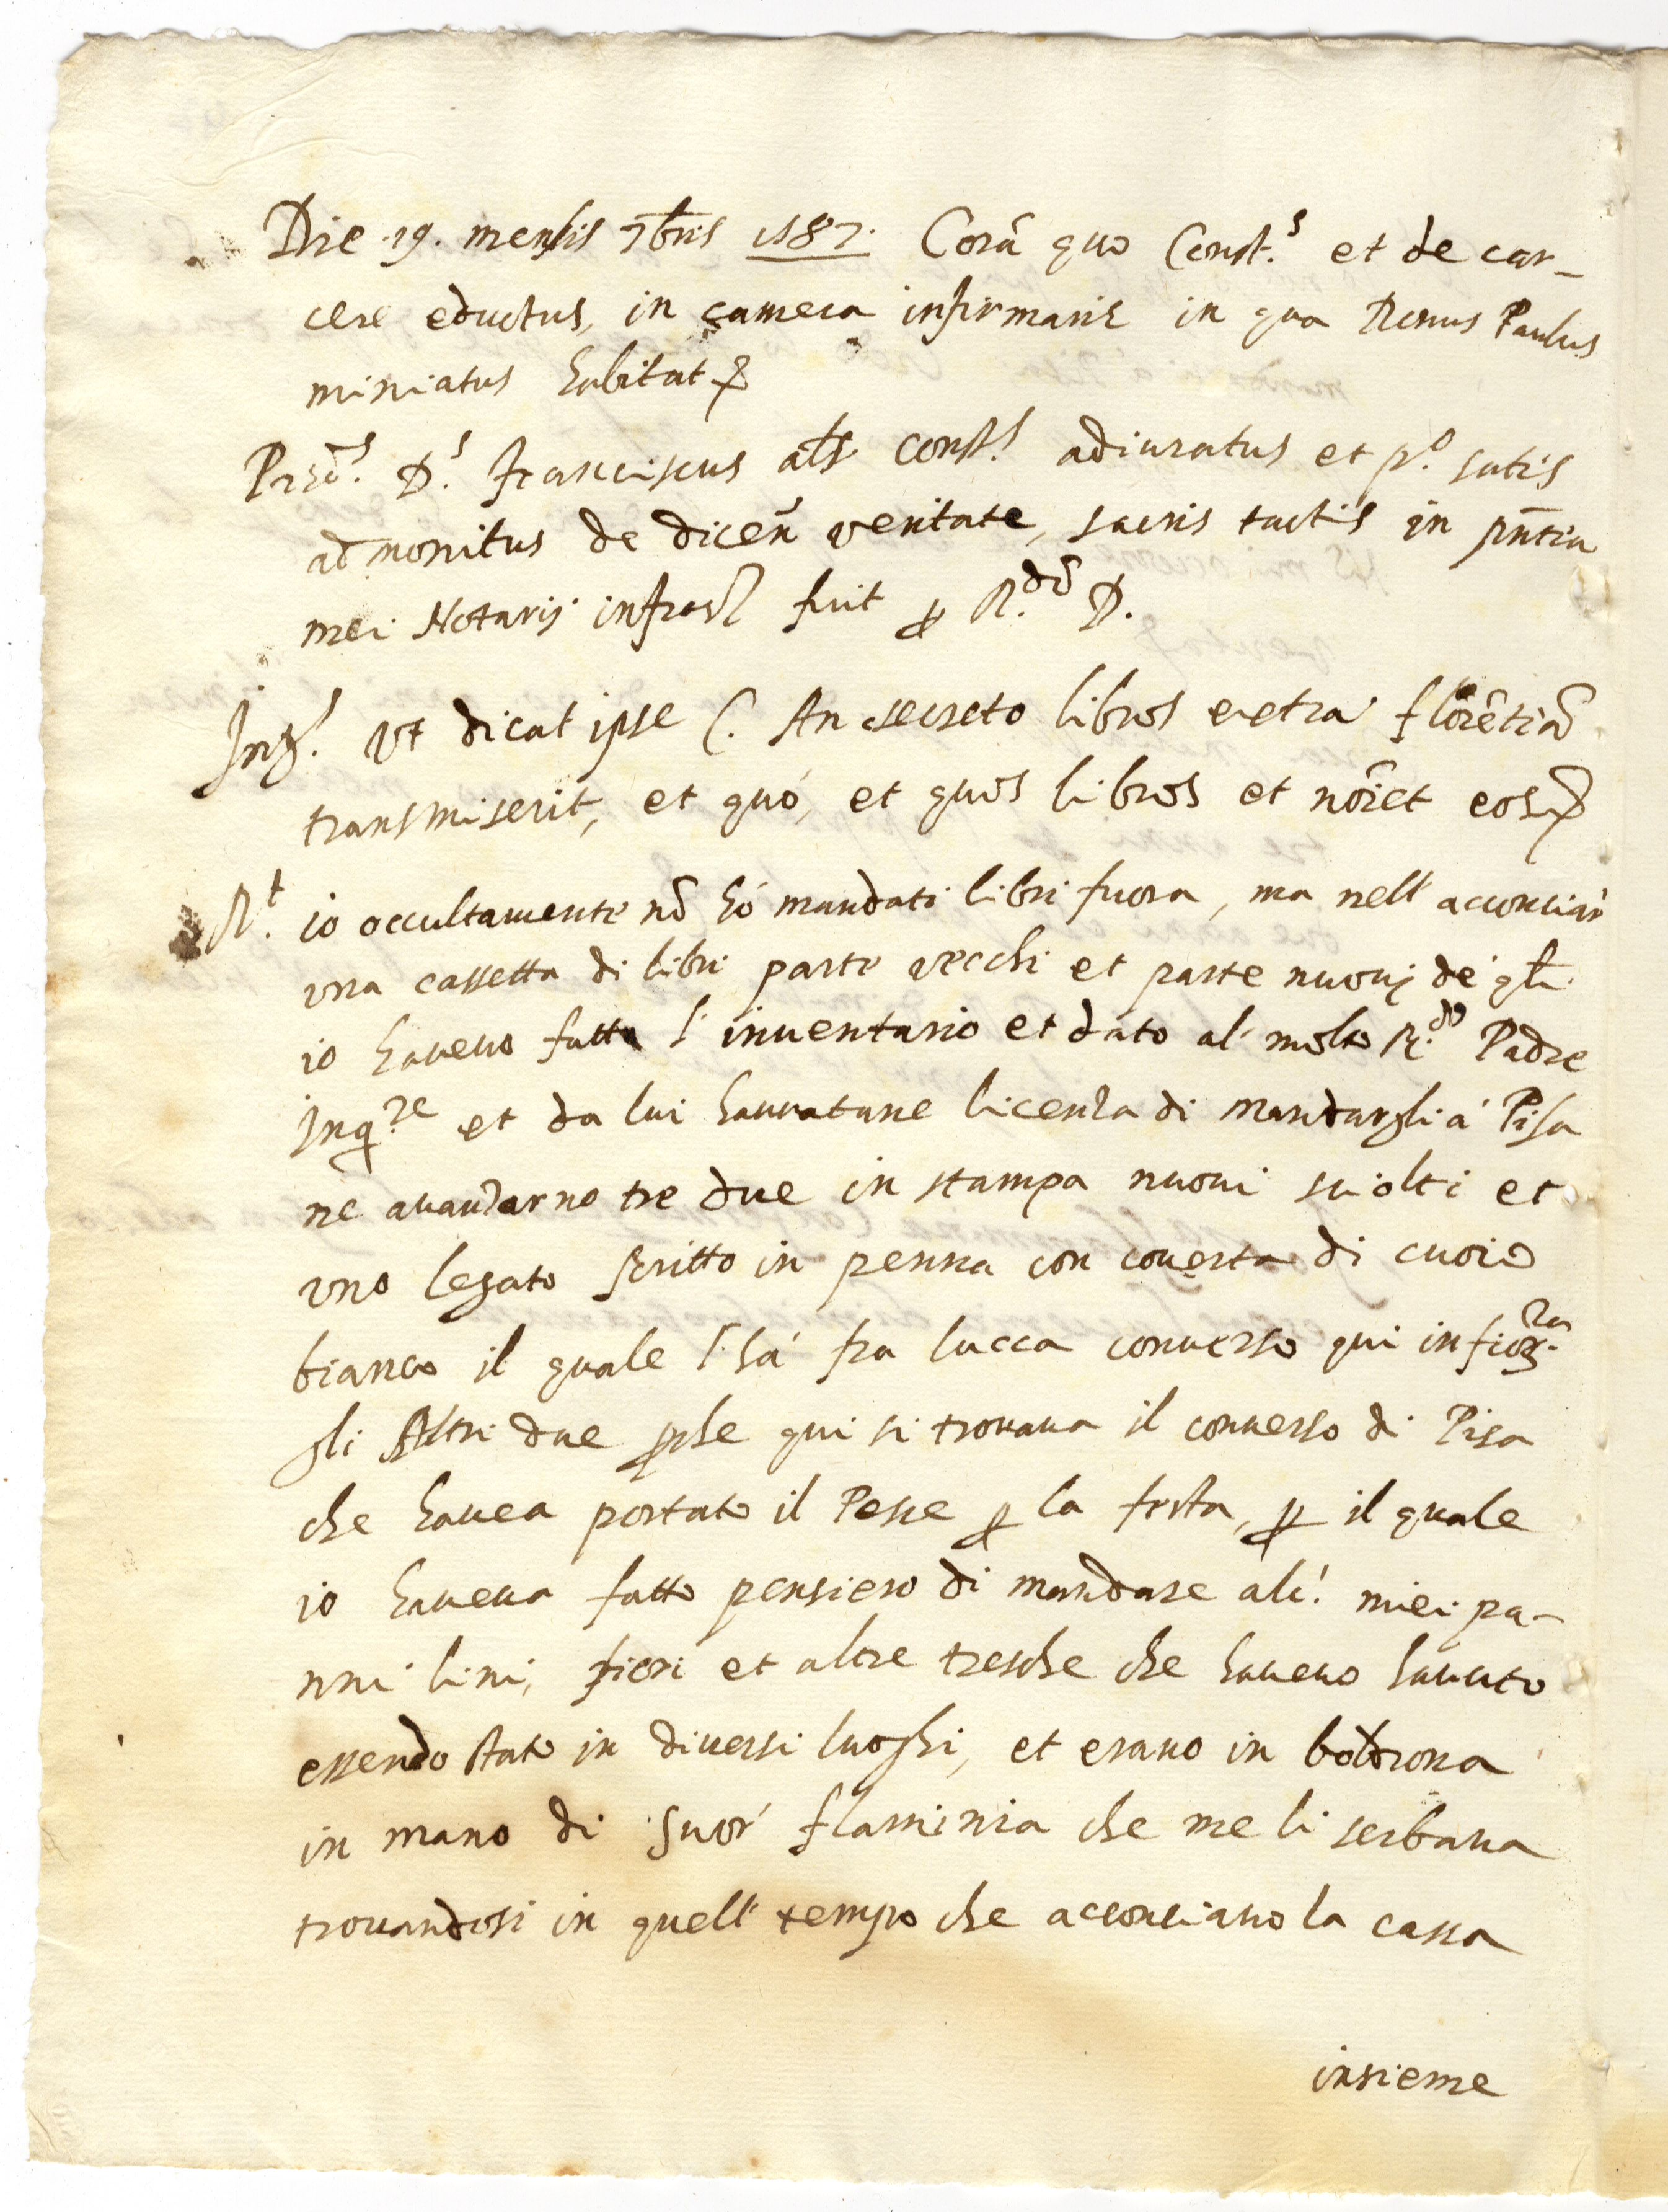 Die 19. mensis 7bris 1587. Corā quo Const.s et de car_
cere eductus, in camera infirmariȩ in qua Renus Paulus
miniatus habitat
Predi.s D.s franciscus als const.s adiuratus et p.o satis
admonitus de dicen̄ veritate, sacris tactis in pn̄tia
mei Notarij infras. fuit p R.do D.
Ing.s Vt dicat ipse C. An secreto libros extra florētiā
transmiserit, et quò, et quos libros et nōiet eos
R.t io occultamente nō hò mandati libri fuora, ma nell' acconciar
una cassetta di libri parte vecchi et parte nuovj de' gli
io haveuo fatto l' inuentario et dato al' molto R.do Padre
Inq.re et da lui hauutane licenza di mandargli à Pisa
ne auanzarno tre due in stampa nuoui sciolti et
uno legato scritto in penna con coverta di cuoio
bianco il quale l' hà fra lucca converso qui in fior.za
gli Altri due pche qui si trouaua il converso di Pisa
che hauea portato il Pesce p la festa, p il quale
io haueua fatto pensiero di mandare alc.i miei pa-
nni lini, fiori et altre tresche che haueuo hauuto
essendo stato in diuersi luoghi, et erano in boldrona
in mano di Suor' flaminia che me li serbaua
trouandosi in quell' tempo che acconciauo la cassa
insieme